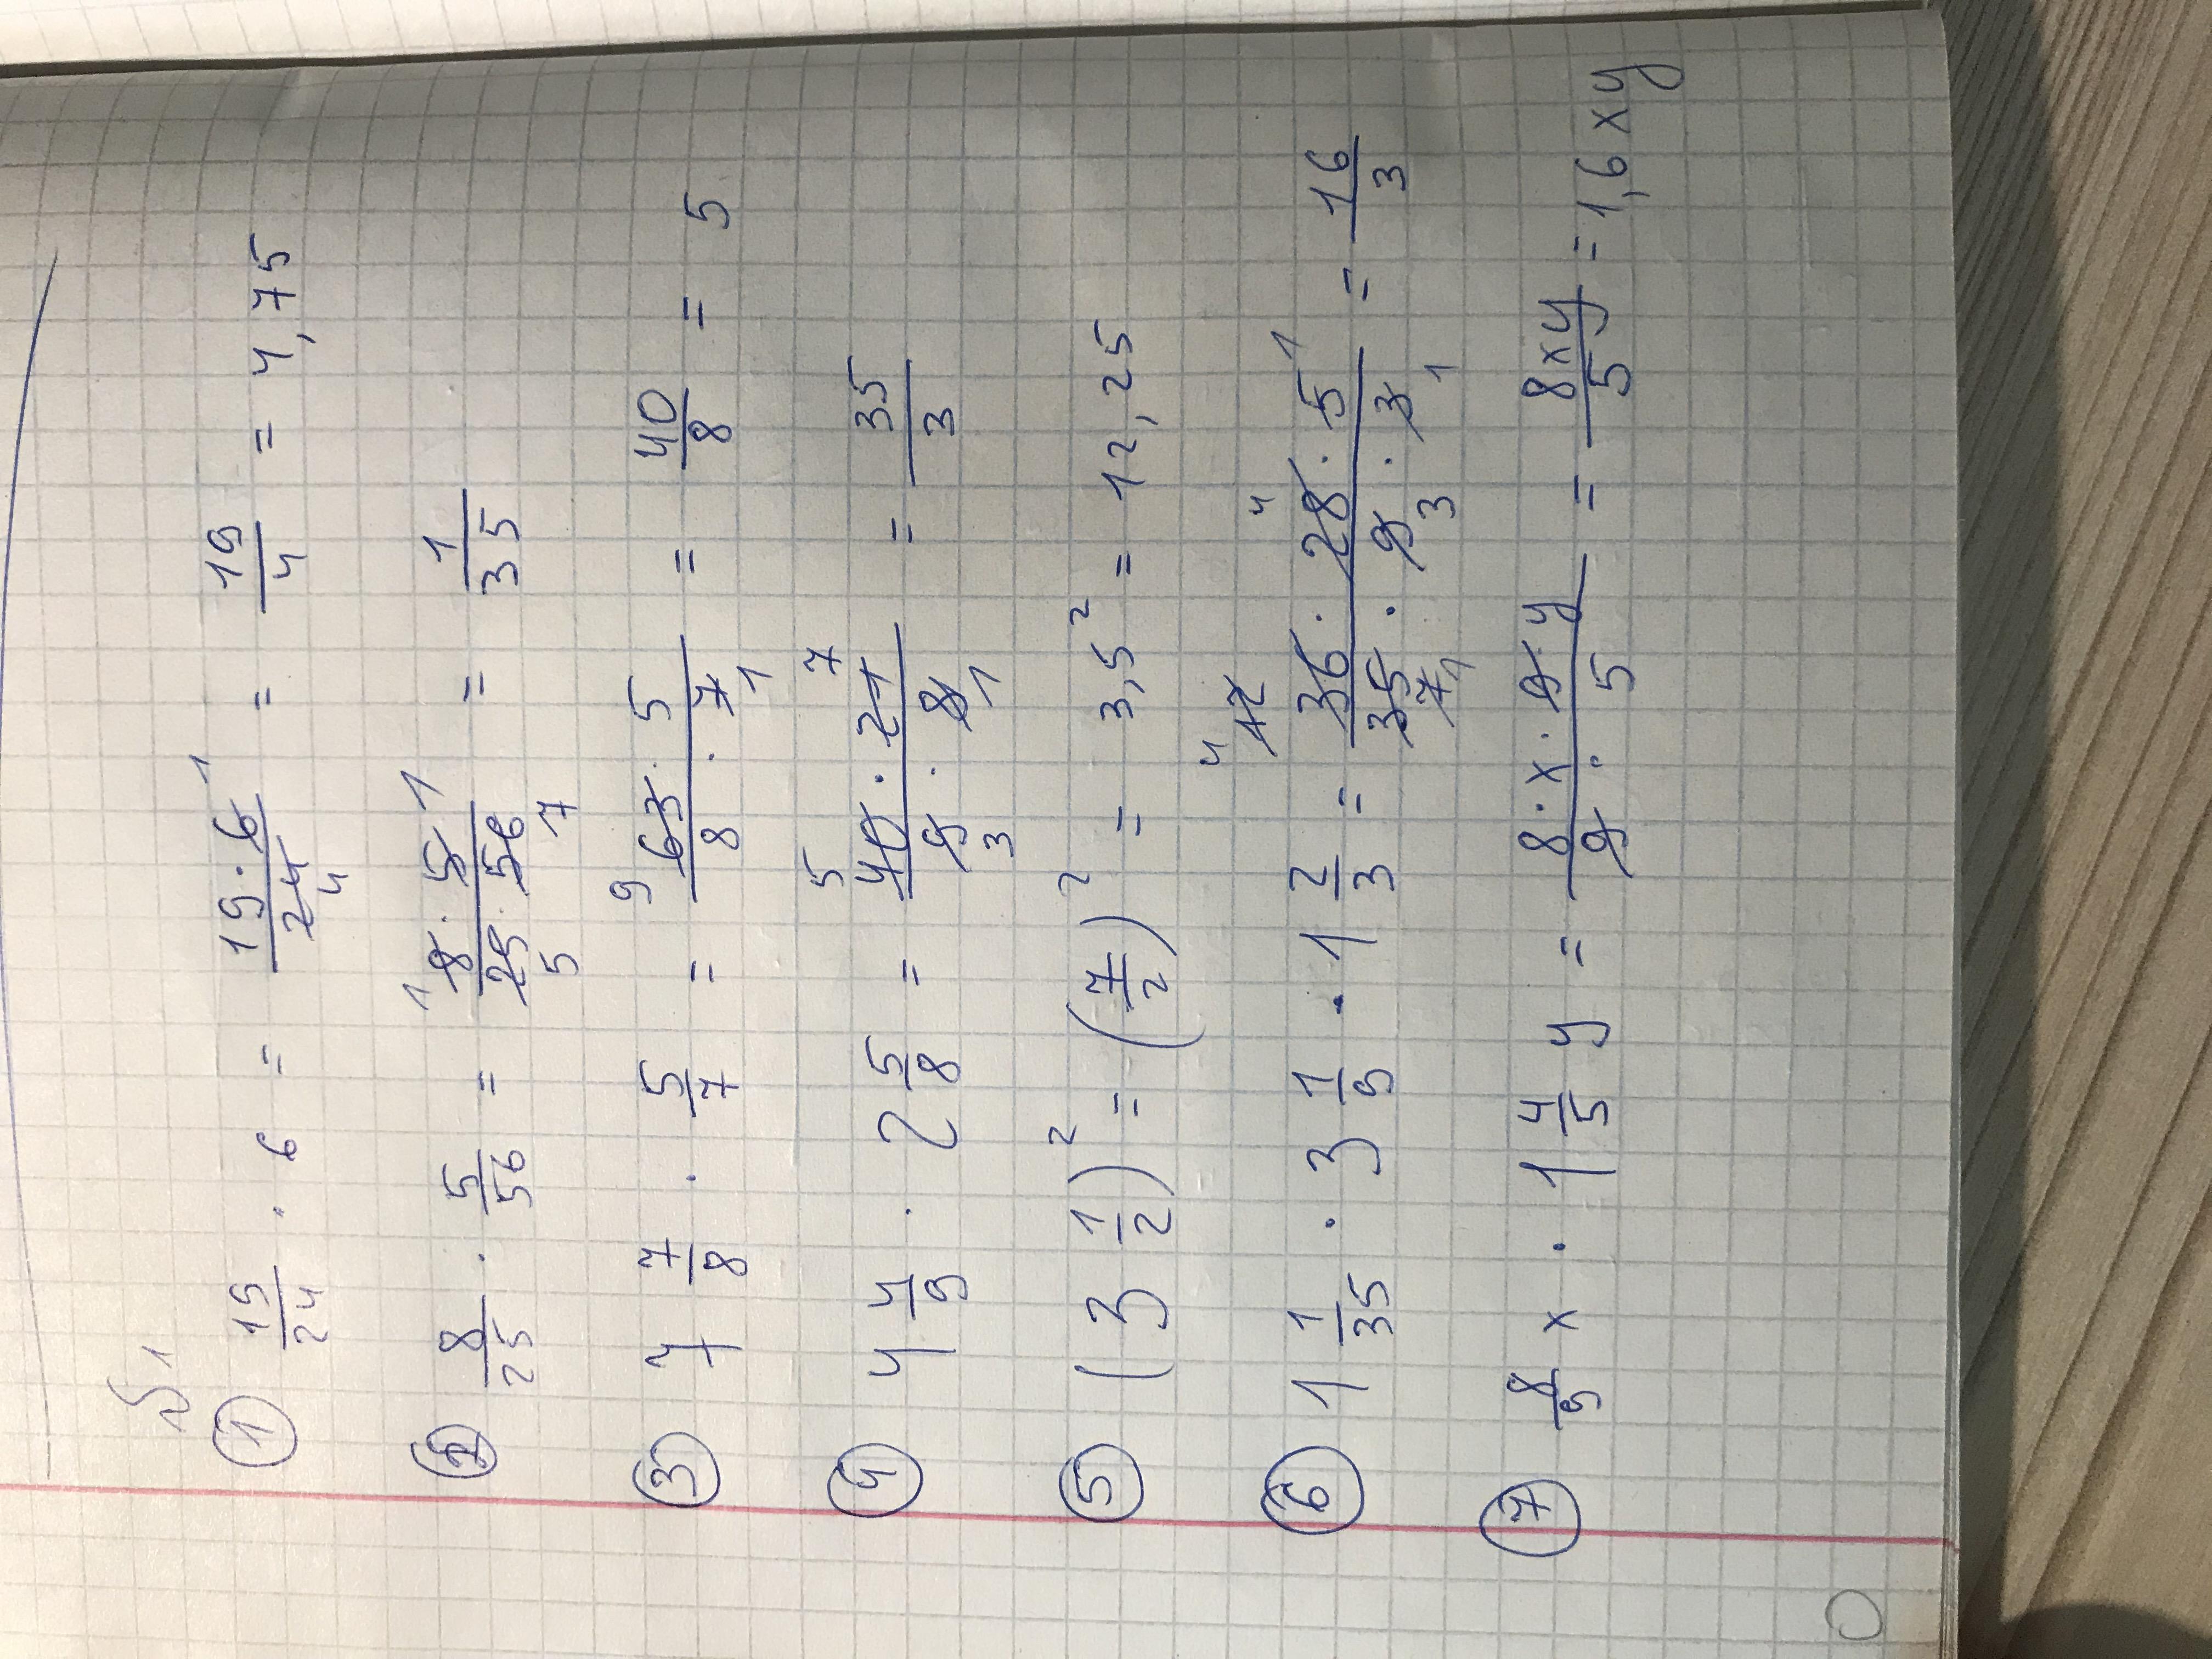 №1
① 19/24 · 6 = 19·6/24 1 4 = 19/4 = 4,75
② 8/25 · 5/56 = 1 8·5 1/25·56 5 7 = 1/35
③ 7 7/8 · 5/7 = 9 63·5/8·7 1 = 40/8 = 5
④ 4 4/9 · 2 5/8 = 5 40·21 7/9·8 3 1 = 35/3
⑤ (3 1/2)² = (7/2)² = 3,5² = 12,25
⑥ 1 1/35 · 3 1/9 · 1 2/3 = 4 12 36·28 4·5 1/35·9·3 7 1 3 1 = 16/3
⑦ 8/9 x · 1 4/5 y = 8·x·9·y/9·5 = 8xy/5 = 1,6xy